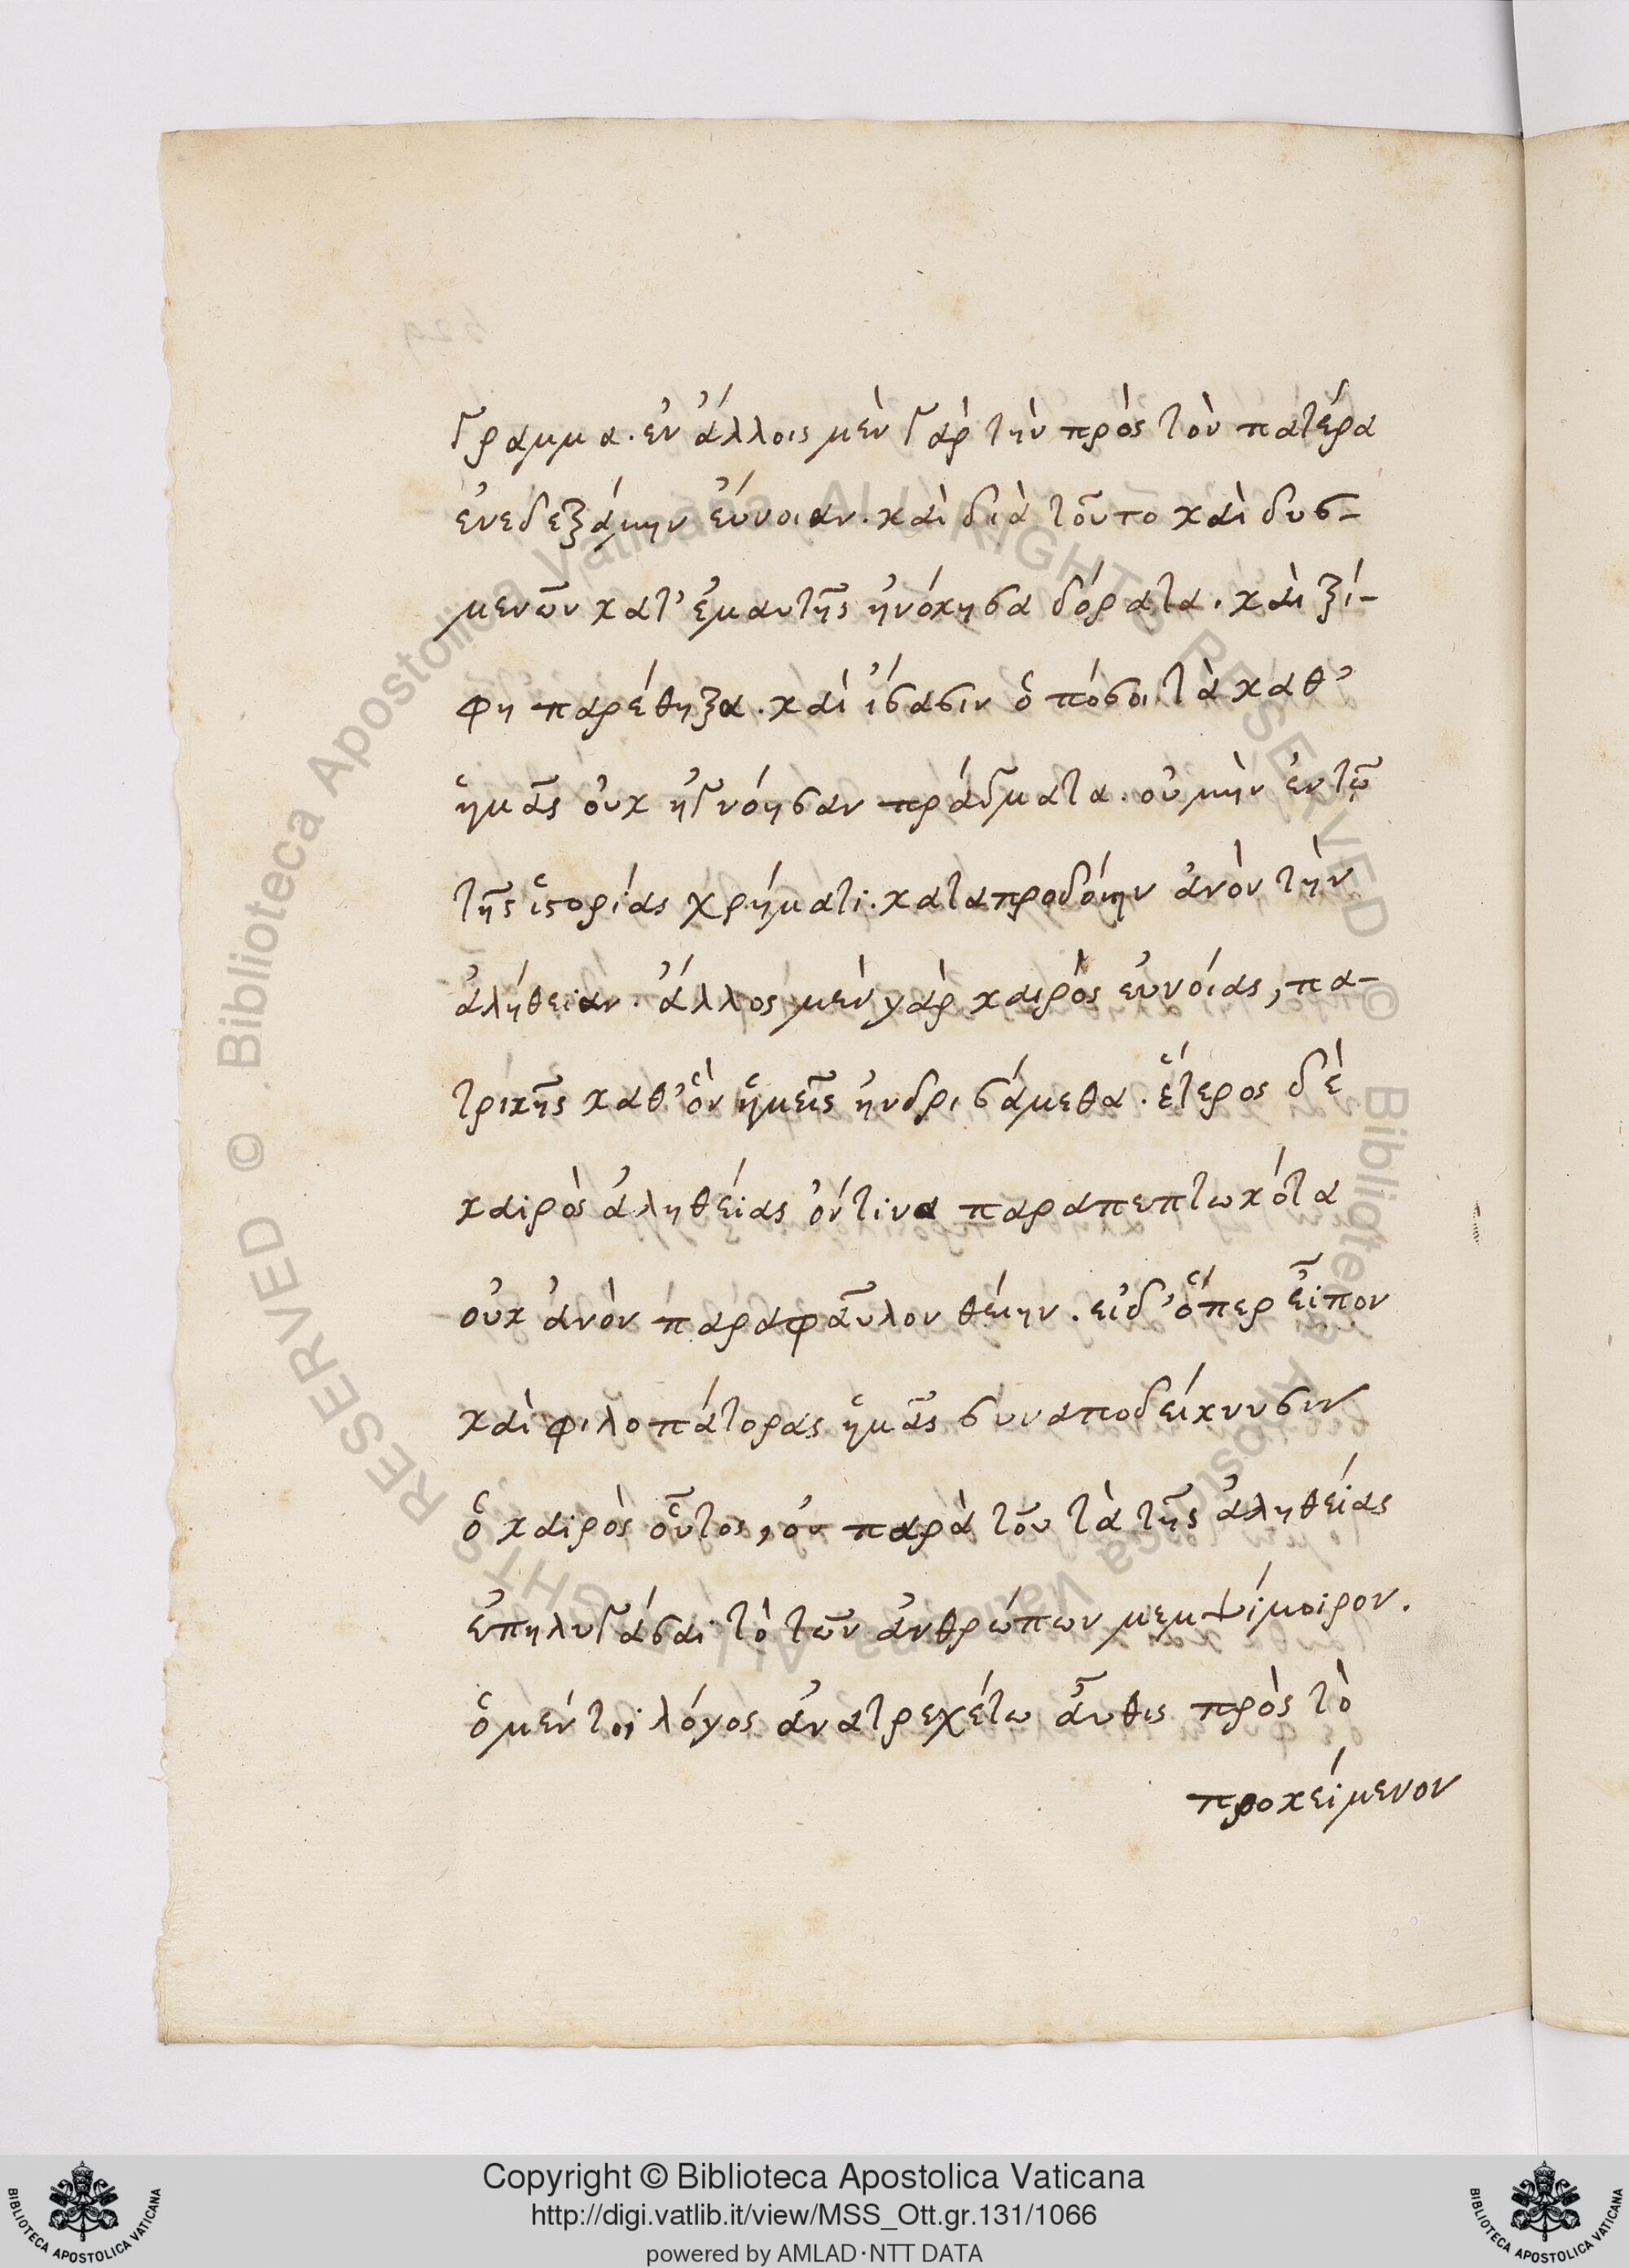 γραμμα. ἐν ἄλλοις μὲν γὰρ τὴν πρὸς τὸν πατέρα
ἐνεδεξάμην εὔνοιαν. καὶ διὰ τοῦτο καὶ δυσ-
μενῶν κατ' ἐμαυτῆς ἠκόνησα δόρατα. καὶ ξί-
φη παρέθηξα. καὶ ἴσασιν ὁπόσοι τὰ καθ'
ἡμᾶς οὐκ ἠγνόησαν πράγματα. οὐ μὴν ἐν τῷ
τῆς ἱστορίας χρήματι. καταπροδοίην ἀνὸν τὴν
ἀλήθειαν. ἄλλος μὲν γὰρ καιρὸς εὐνοίας, πα-
τρικῆς καθ' ὃν ἡμεῖς ἠνδρισάμεθα. ἕτερος δὲ
καιρὸς ἀληθείας ὅντινα παραπεπτωκότα
οὐκ ἀνὸν παραφαῦλον θείην. εἰ δ' ὅπερ εἶπον
καὶ φιλοπάτορας ἡμᾶς συναποδείκνυσιν
ὁ καιρὸς οὗτος, οὐ παρὰ τοῦ τὰ τῆς ἀληθείας
ἐπηλυγάσαι τὸ τῶν ἀνθρώπων μεμψίμοιρον.
ὁ μέντοι λόγος ἀνατρεχέτω αὖθις πρὸς τὸ
προκείμενον
Copyright © Biblioteca Apostolica Vaticana
http://digi.vatlib.it/view/MSS_Ott.gr.131/1066
powered by AMLAD·NTT DATA
BIBLIOTECA APOSTOLICA VATICANA
BIBLIOTECA APOSTOLICA VATICANA
© Biblioteca Apostolica Vaticana ALL RIGHTS RESERVED © Biblioteca Apostolica Vaticana ALL RIGHTS RESERVED